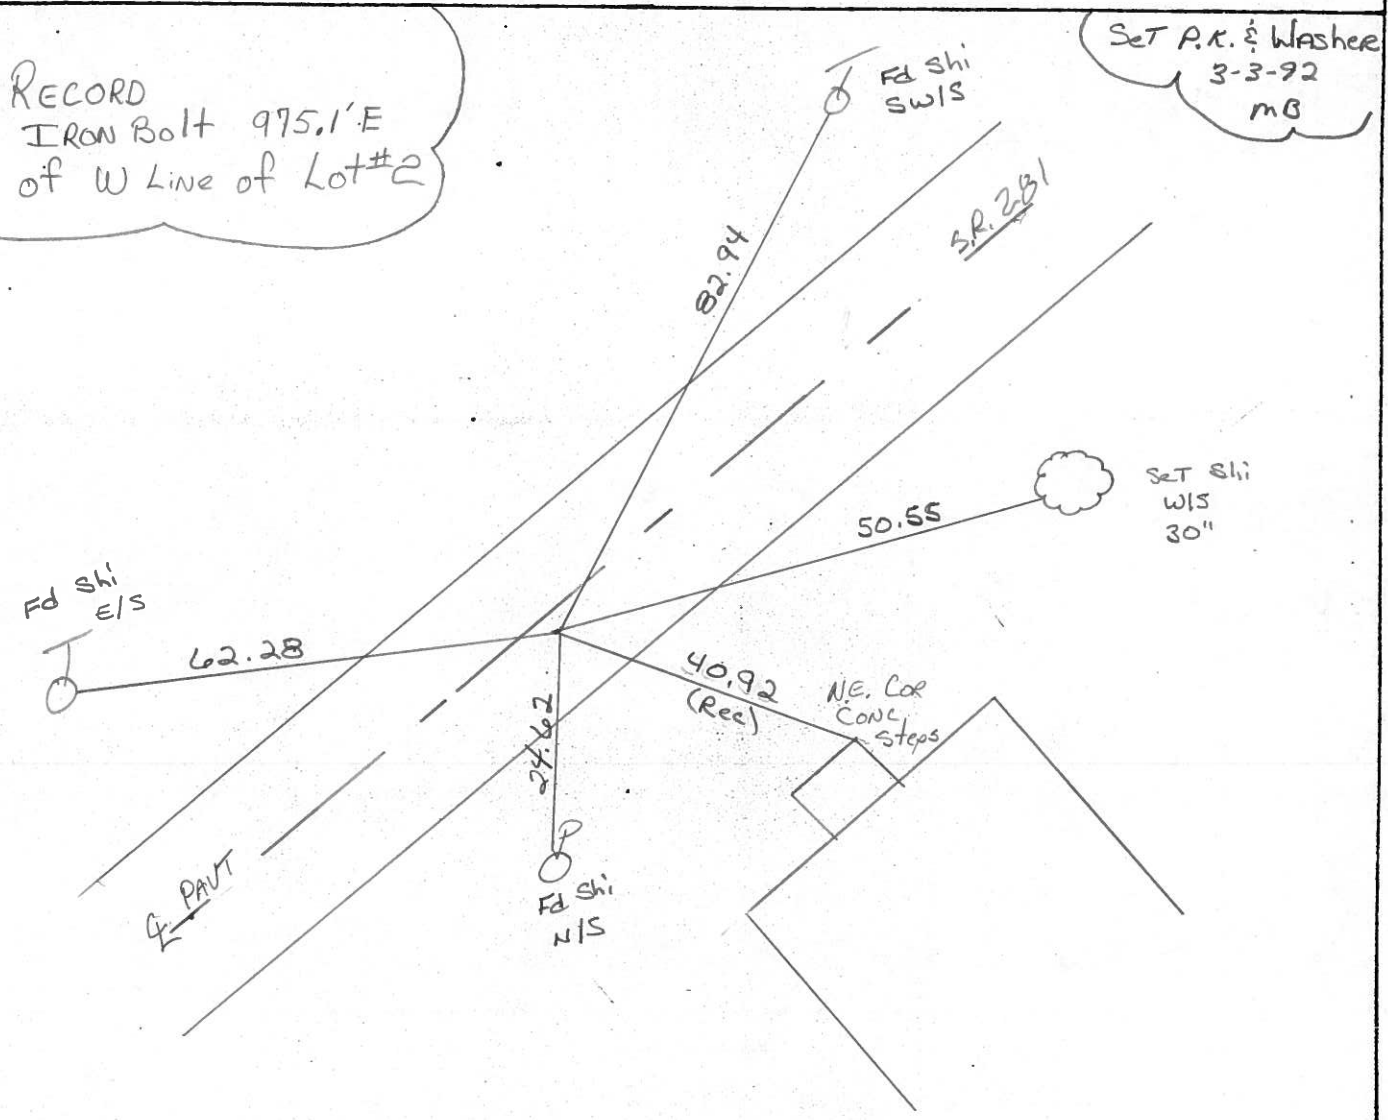 RECORD
IRON Bolt 975.1' E
of W Line of Lot #2
SeT P.K. & Washer
3-3-92
mB
Fd Shi
SW/S
S.R. 281
82.94
SeT Shi
W/S
30"
50.55
Fd Shi
E/S
62.28
40.92
(Rec)
N.E. COR
CONC
Steps
24.62
P
Fd Shi
N/S
℄ PAVT